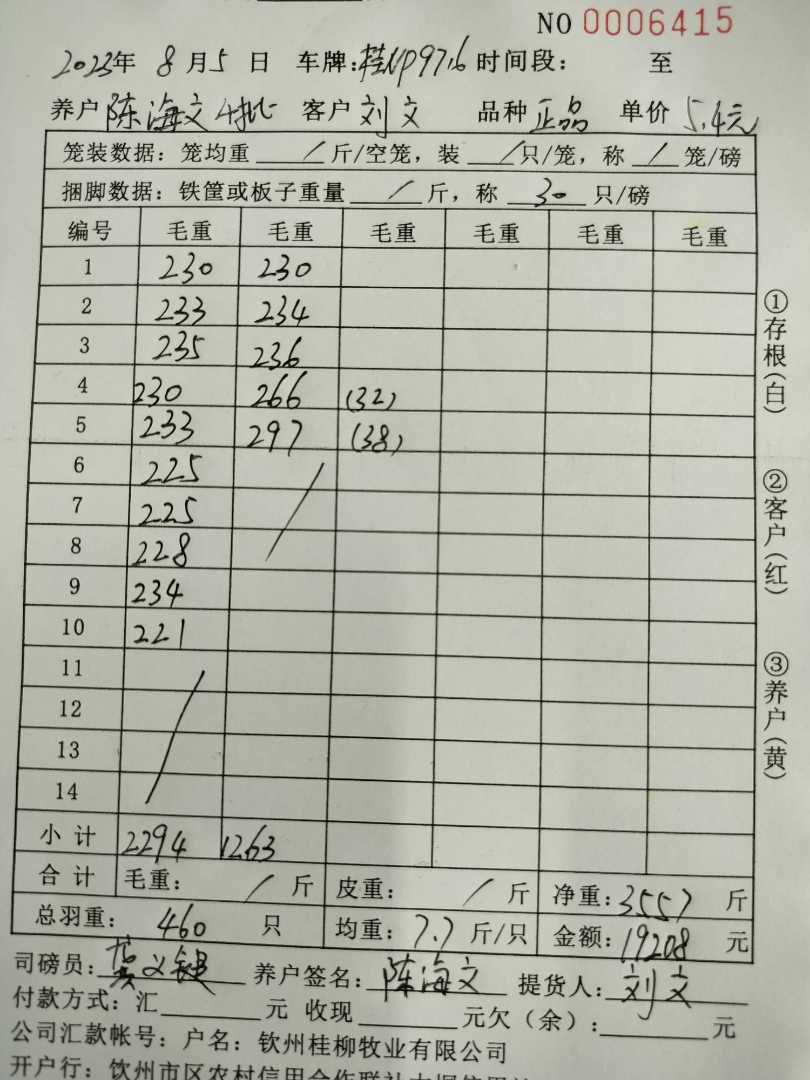 NO 0006415
2023年 8月5日 车牌:桂NP9716 时间段: 至
养户 陈海文4批 客户 刘文 品种 正品 单价 5.4元
笼装数据: 笼均重 / 斤/空笼, 装 / 只/笼, 称 / 笼/磅
捆脚数据: 铁筐或板子重量 / 斤, 称 30 只/磅
编号 毛重 毛重 毛重 毛重 毛重 毛重
1 230 230
2 233 234
3 235 236
4 230 266 (32)
5 233 297 (38)
6 225 /
7 225
8 228
9 234
10 221
11 /
12
13
14
小计 2294 1263
合计 毛重: / 斤 皮重: / 斤 净重: 3557 斤
总羽重: 460 只 均重: 7.7 斤/只 金额: 19208 元
司磅员: 龚义键 养户签名: 陈海文 提货人: 刘文
付款方式: 汇 元 收现 元欠(余): 元
公司汇款帐号: 户名: 钦州桂柳牧业有限公司
开户行: 钦州市区农村信用合作联社
①存根(白)
②客户(红)
③养户(黄)